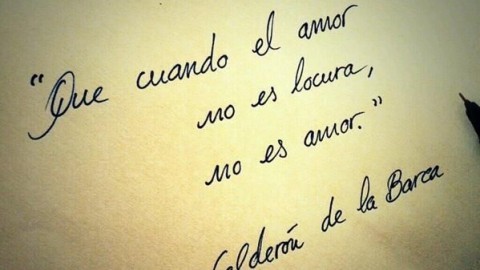 “Que cuando el amor
no es locura,
no es amor.”
Calderón de la Barca